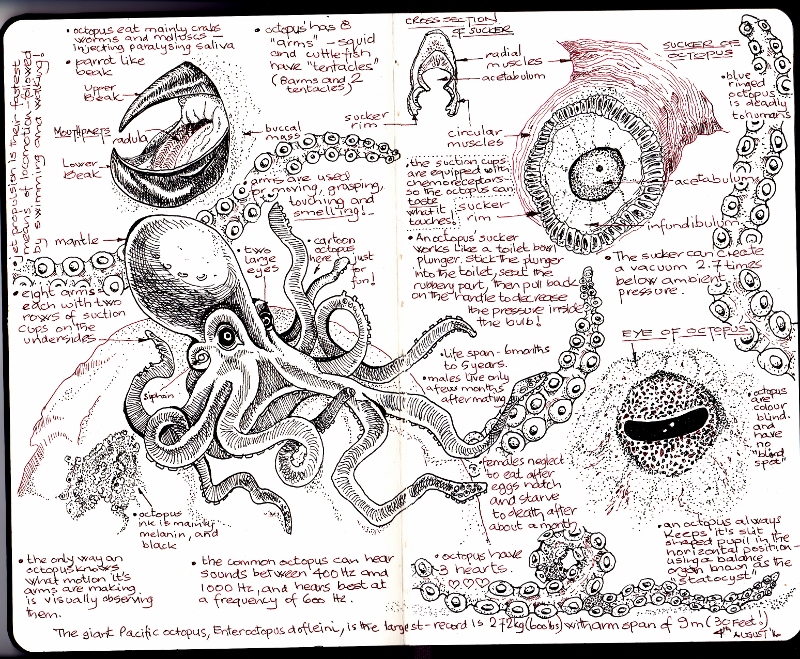 • octopus eat mainly crabs
worms and molluscs -
injecting paralysing saliva
• parrot like
beak
Upper
Beak
Mouthparts
radula
Lower
Beak
buccal
mass
• jet propulsion is their fastest
means of locomotion, followed
by swimming and walking!
• octopus has 8
"arms" - squid
and cuttlefish
have "tentacles"
(8 arms and 2
tentacles)
CROSS SECTION
OF SUCKER
radial
muscles
acetabulum
sucker
rim
circular
muscles
SUCKER OF
OCTOPUS
acetabulum
infundibulum
sucker
rim
• blue
ringed
octopus
is deadly
to humans
• the suction cups
are equipped with
chemoreceptors
so the octopus can
taste
what it
touches!
• arms are used
for moving, grasping,
touching and
smelling!
mantle
• two
large
eyes
• cartoon
octopus
here just
for
fun!
• An octopus' sucker
works like a toilet bowl
plunger. Stick the plunger
into the toilet, seat the
rubbery part, then pull back
on the handle to decrease
the pressure inside
the bulb!
• The sucker can create
a vacuum 2.7 times
below ambient
pressure.
• eight arms
each with two
rows of suction
cups on the
undersides
siphon
EYE OF OCTOPUS
• life span - 6 months
to 5 years.
• males live only
a few months
after mating
• octopus
are
colour
blind.
and
have
no
"blind
spot"
• females neglect
to eat after
eggs hatch
and starve
to death after
about a month
• octopus
ink is mainly
melanin, and
black
• an octopus always
keeps it's slit
shaped pupil in the
horizontal position -
using a balance
organ known as the
"statocyst"
• the only way an
octopus knows
what motion it's
arms are making
is visually observing
them.
• the common octopus can hear
sounds between 400 Hz and
1000 Hz, and hears best at
a frequency of 600 Hz.
• octopus have
3 hearts.
The giant Pacific octopus, Enteroctopus dofleini, is the largest - record is 272kg (600lbs) with arm span of 9m (30 Feet!)
4th AUGUST '16